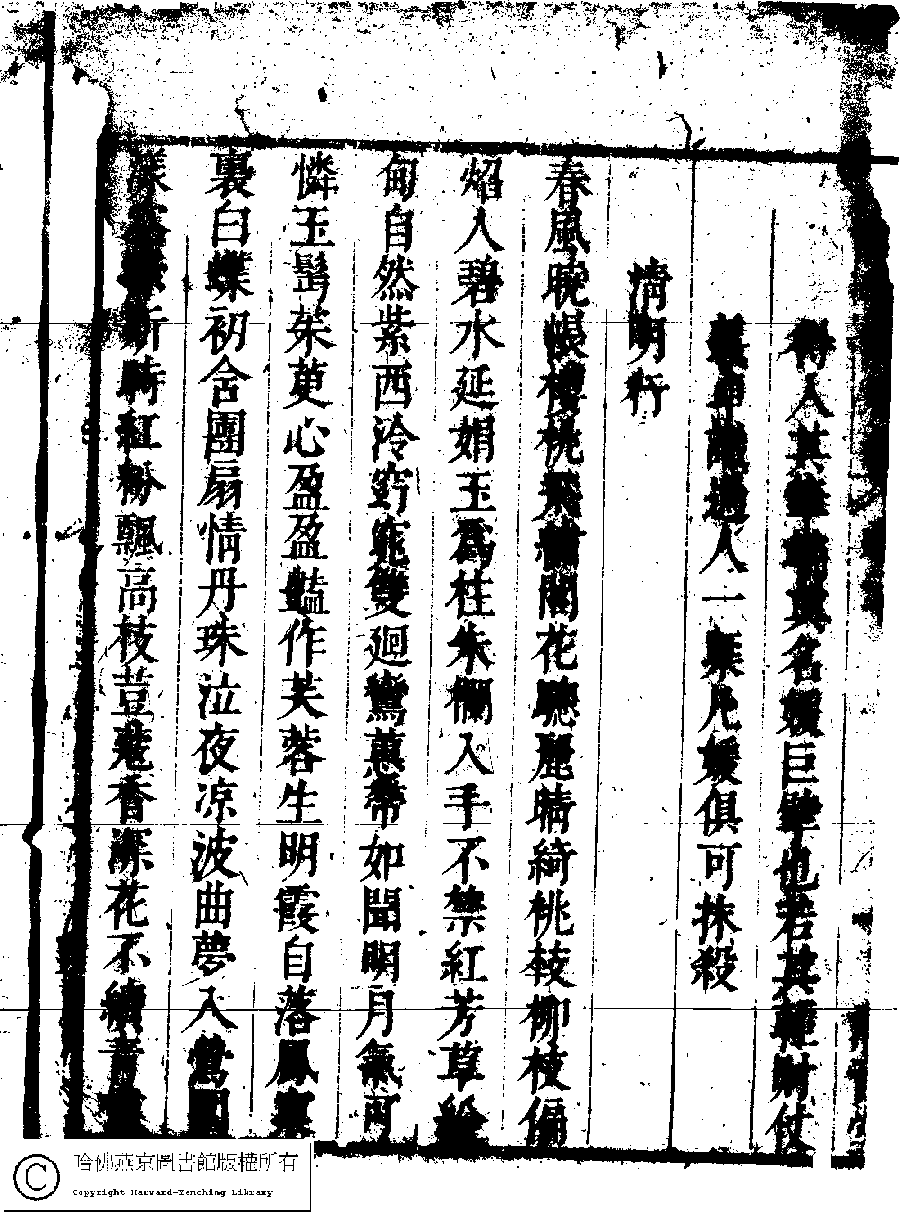 得人其䇿其名媛巨擘也若其輕財仗
義卑識過人一集凡媛俱可抹殺
清明行
春風晼帳櫻桃飛繡閣花驄麗晴綺桃枝柳枝偏
焰人碧水延娟玉為柱朱欄入手不禁紅芳草
甸自然紫西泠窈窕雙迴鸞蕙帶如聞明月氣可
憐玉髻茱萸心盈盈豔作芙蓉生明霞自落鳳
裏白蝶初含團扇情丹珠泣夜凉波曲夢入鶯
新時紅粉飄高枝荳蔻香深花不續青
哈佛燕京圖書館版權所有
Copyright Harvard-Yenching Library